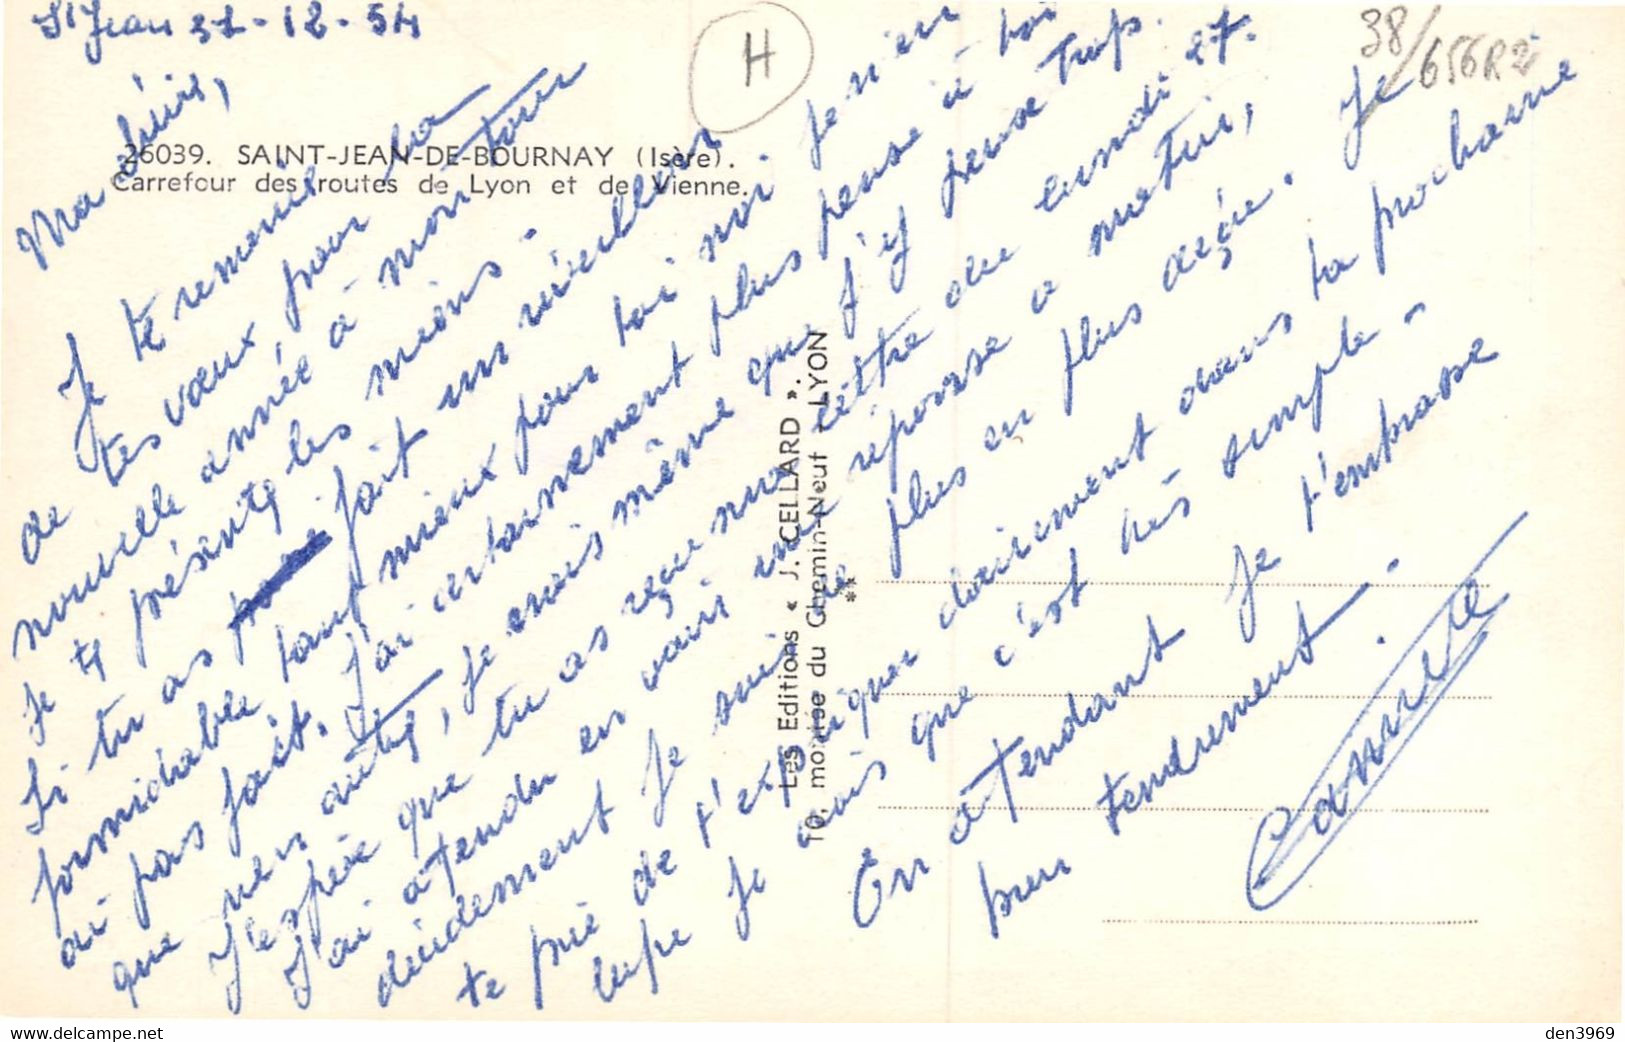 St Jean 31-12-54
H
38/656R2
Ma chérie,
26039. SAINT-JEAN-DE-BOURNAY (Isère).
Carrefour des routes de Lyon et de Vienne.
Je te remercie
de tes vœux, pour la
nouvelle année à mon tour
Je te présente les miens.
Si tu as fait un réveillon
formidable tant mieux pour toi moi. Je n'en
ai pas fait. J'ai certainement plus pensé à toi
que nen autre, je crois même que j'y pense trop.
J'espère que tu as reçu ma lettre du lundi 27.
J'ai attendu en vain une réponse ce matin,
décidément je suis de plus en plus déçue. Je
te prie de t'expliquer clairement dans ta prochaine
Je crois que c'est très simple.
En attendant je t'embrasse
bien tendrement.
Camille
Les Editions « J. CELLARD ».
10, montée du Chemin-Neuf - LYON
**
den3969